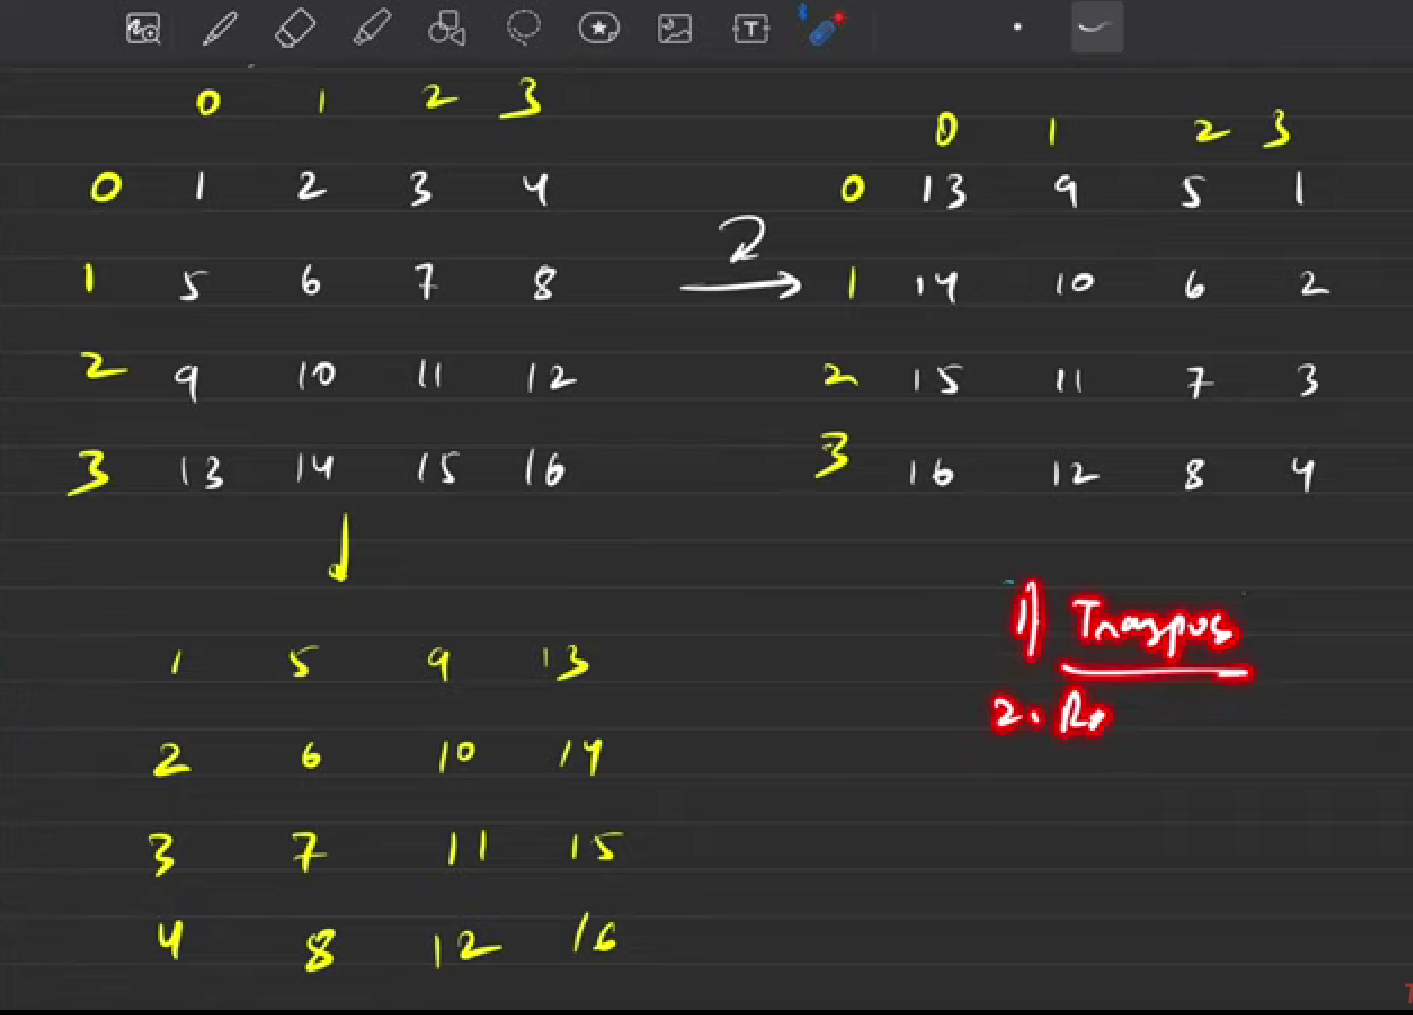 0 1 2 3
0 1 2 3 4
1 5 6 7 8
2 9 10 11 12
3 13 14 15 16
0 1 2 3
0 13 9 5 1
1 14 10 6 2
2 15 11 7 3
3 16 12 8 4
1 5 9 13
2 6 10 14
3 7 11 15
4 8 12 16
1) Traspos
2. Re
T